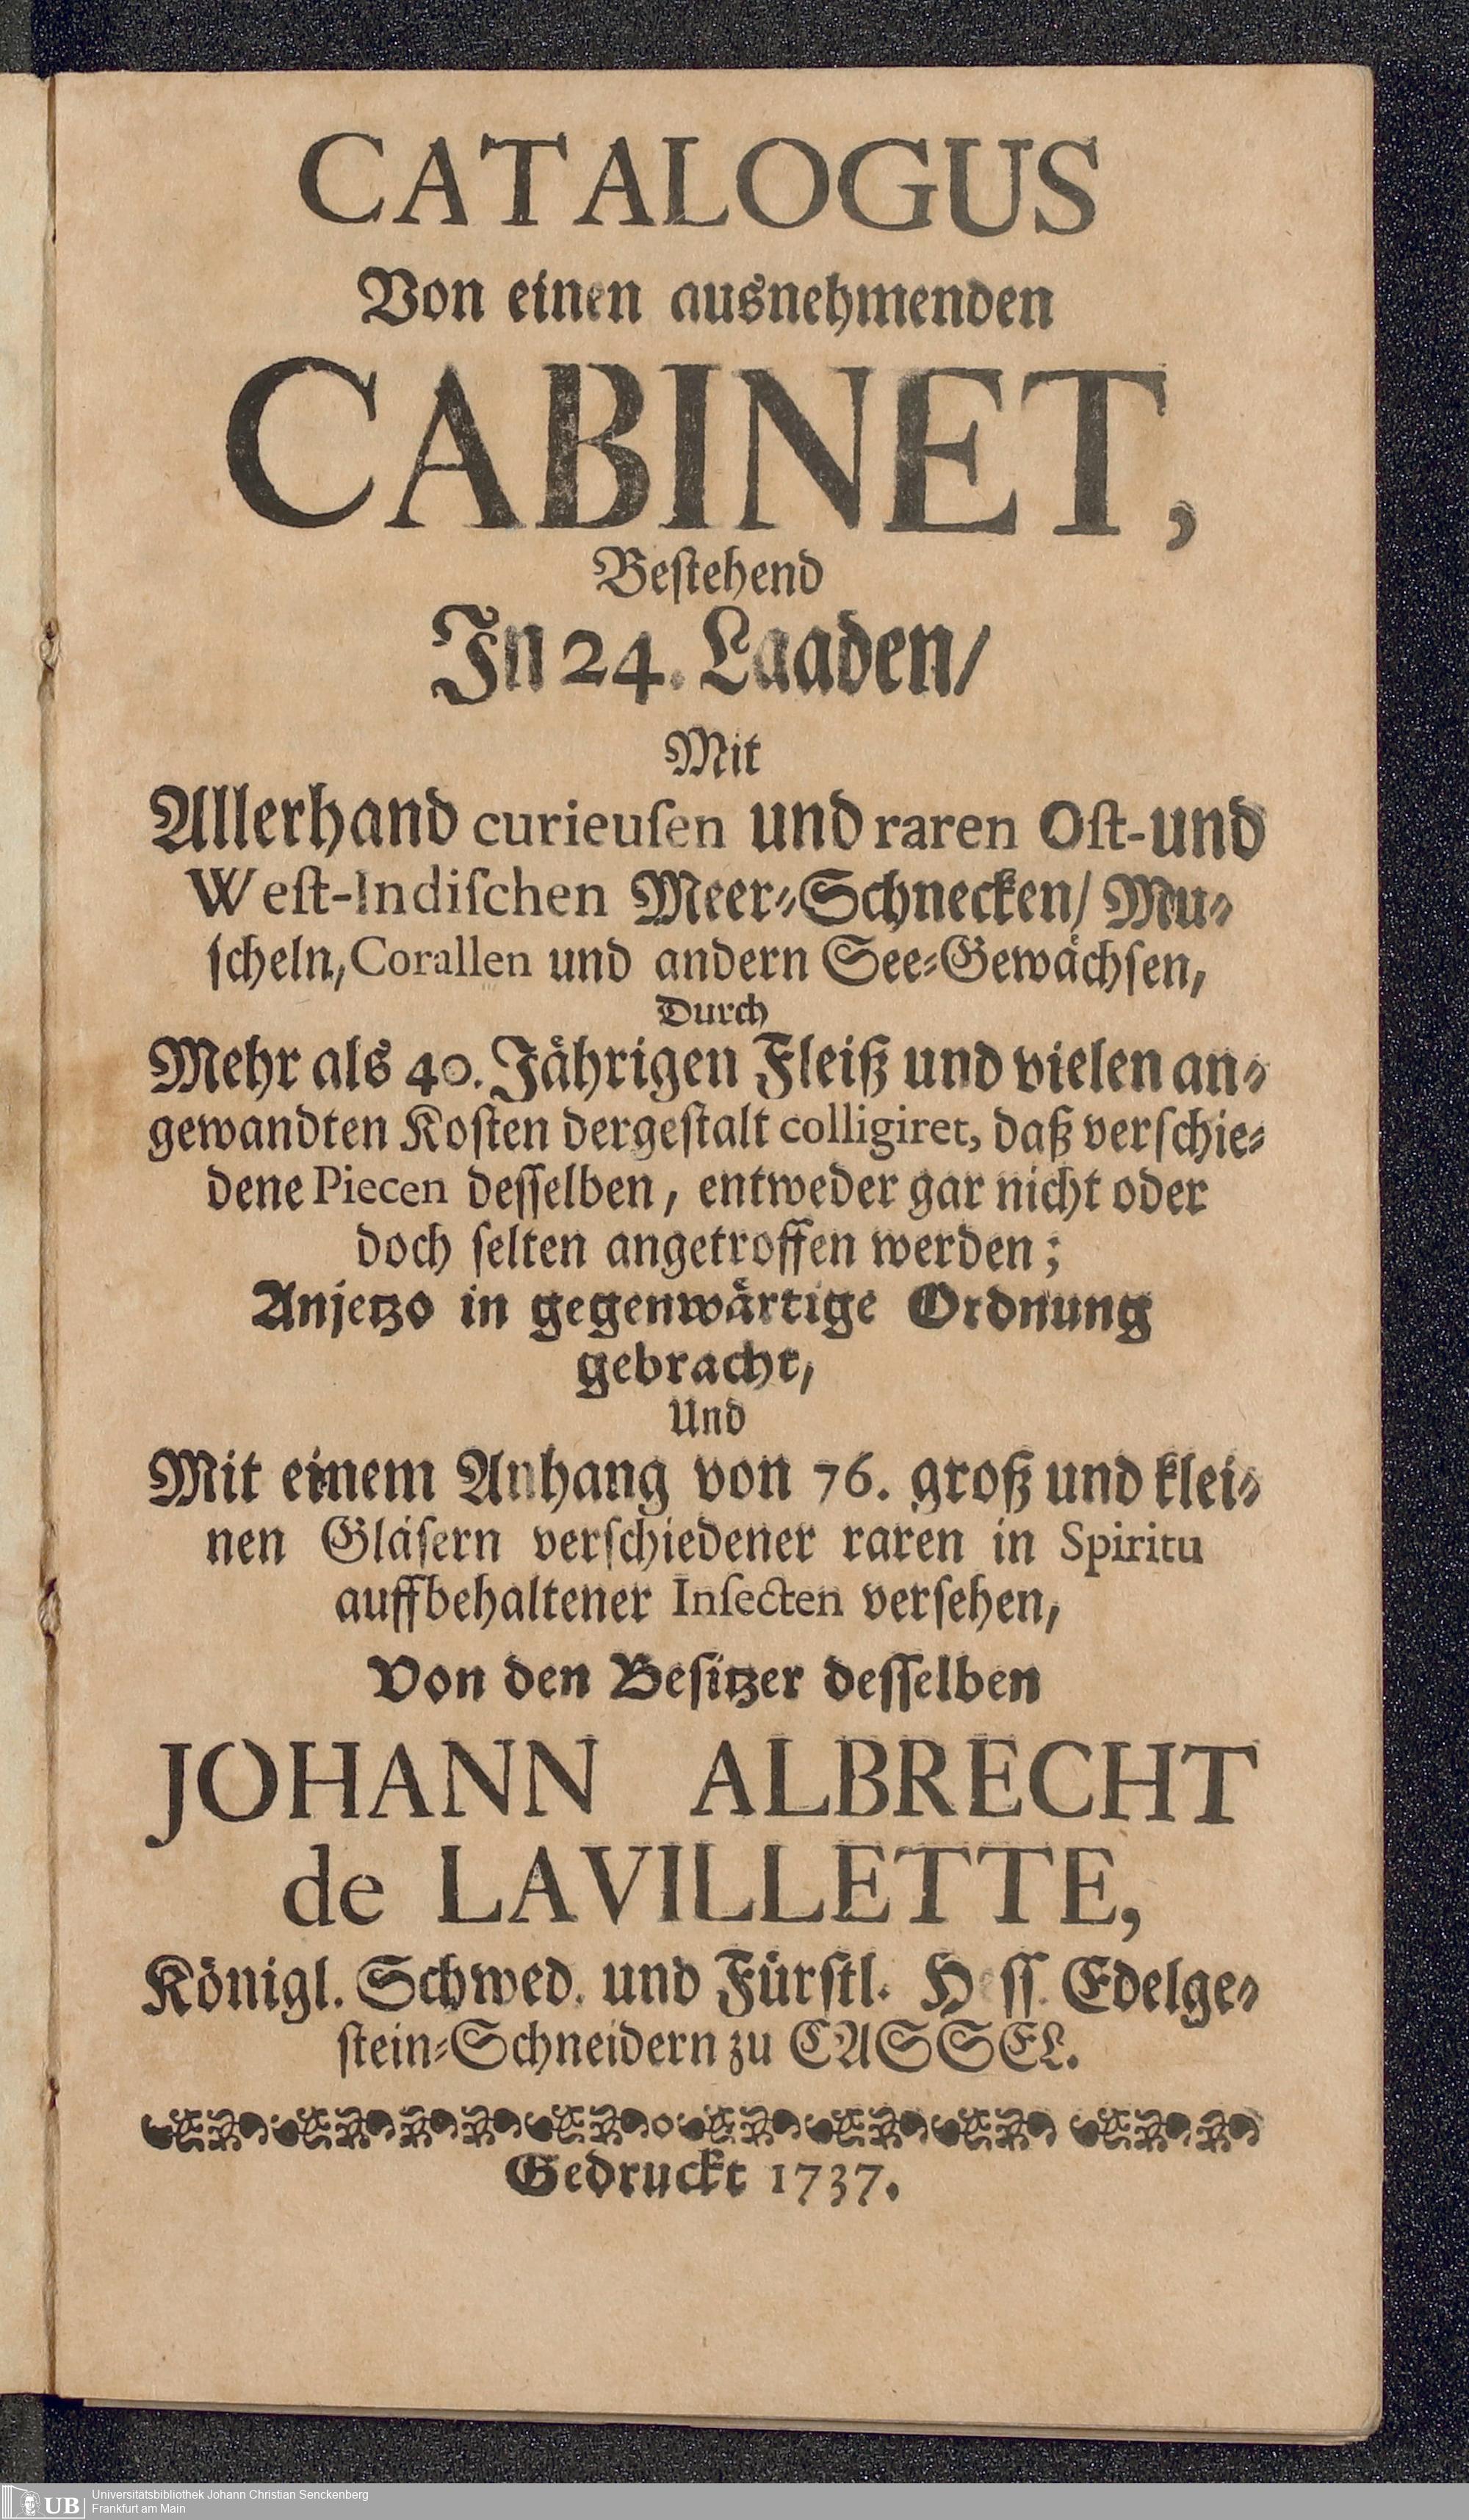 CATALOGUS
Von einen ausnehmenden
CABINET,
Beſtehend
Jn 24. Laaden/
Mit
Allerhand curieuſen und raren Oſt-und
Weſt-Indiſchen Meer-Schnecken/ Mu-
ſcheln, Corallen und andern See-Gewächſen,
Durch
Mehr als 40. Jährigen Fleiß und vielen an-
gewandten Koſten dergeſtalt colligiret, daß verſchie-
dene Piecen deſſelben, entweder gar nicht oder
doch ſelten angetroffen werden;
Anjetzo in gegenwärtige Ordnung
gebracht,
Und
Mit einem Anhang von 76. groß und klei-
nen Gläſern verſchiedener raren in Spiritu
auffbehaltener Inſecten verſehen,
Von den Beſitzer deſſelben
JOHANN ALBRECHT
de LAVILLETTE,
Königl. Schwed. und Fürſtl. Heſſ. Edelge-
ſtein-Schneidern zu CASSEL.
Gedruckt 1737.
UB
Universitätsbibliothek Johann Christian Senckenberg
Frankfurt am Main